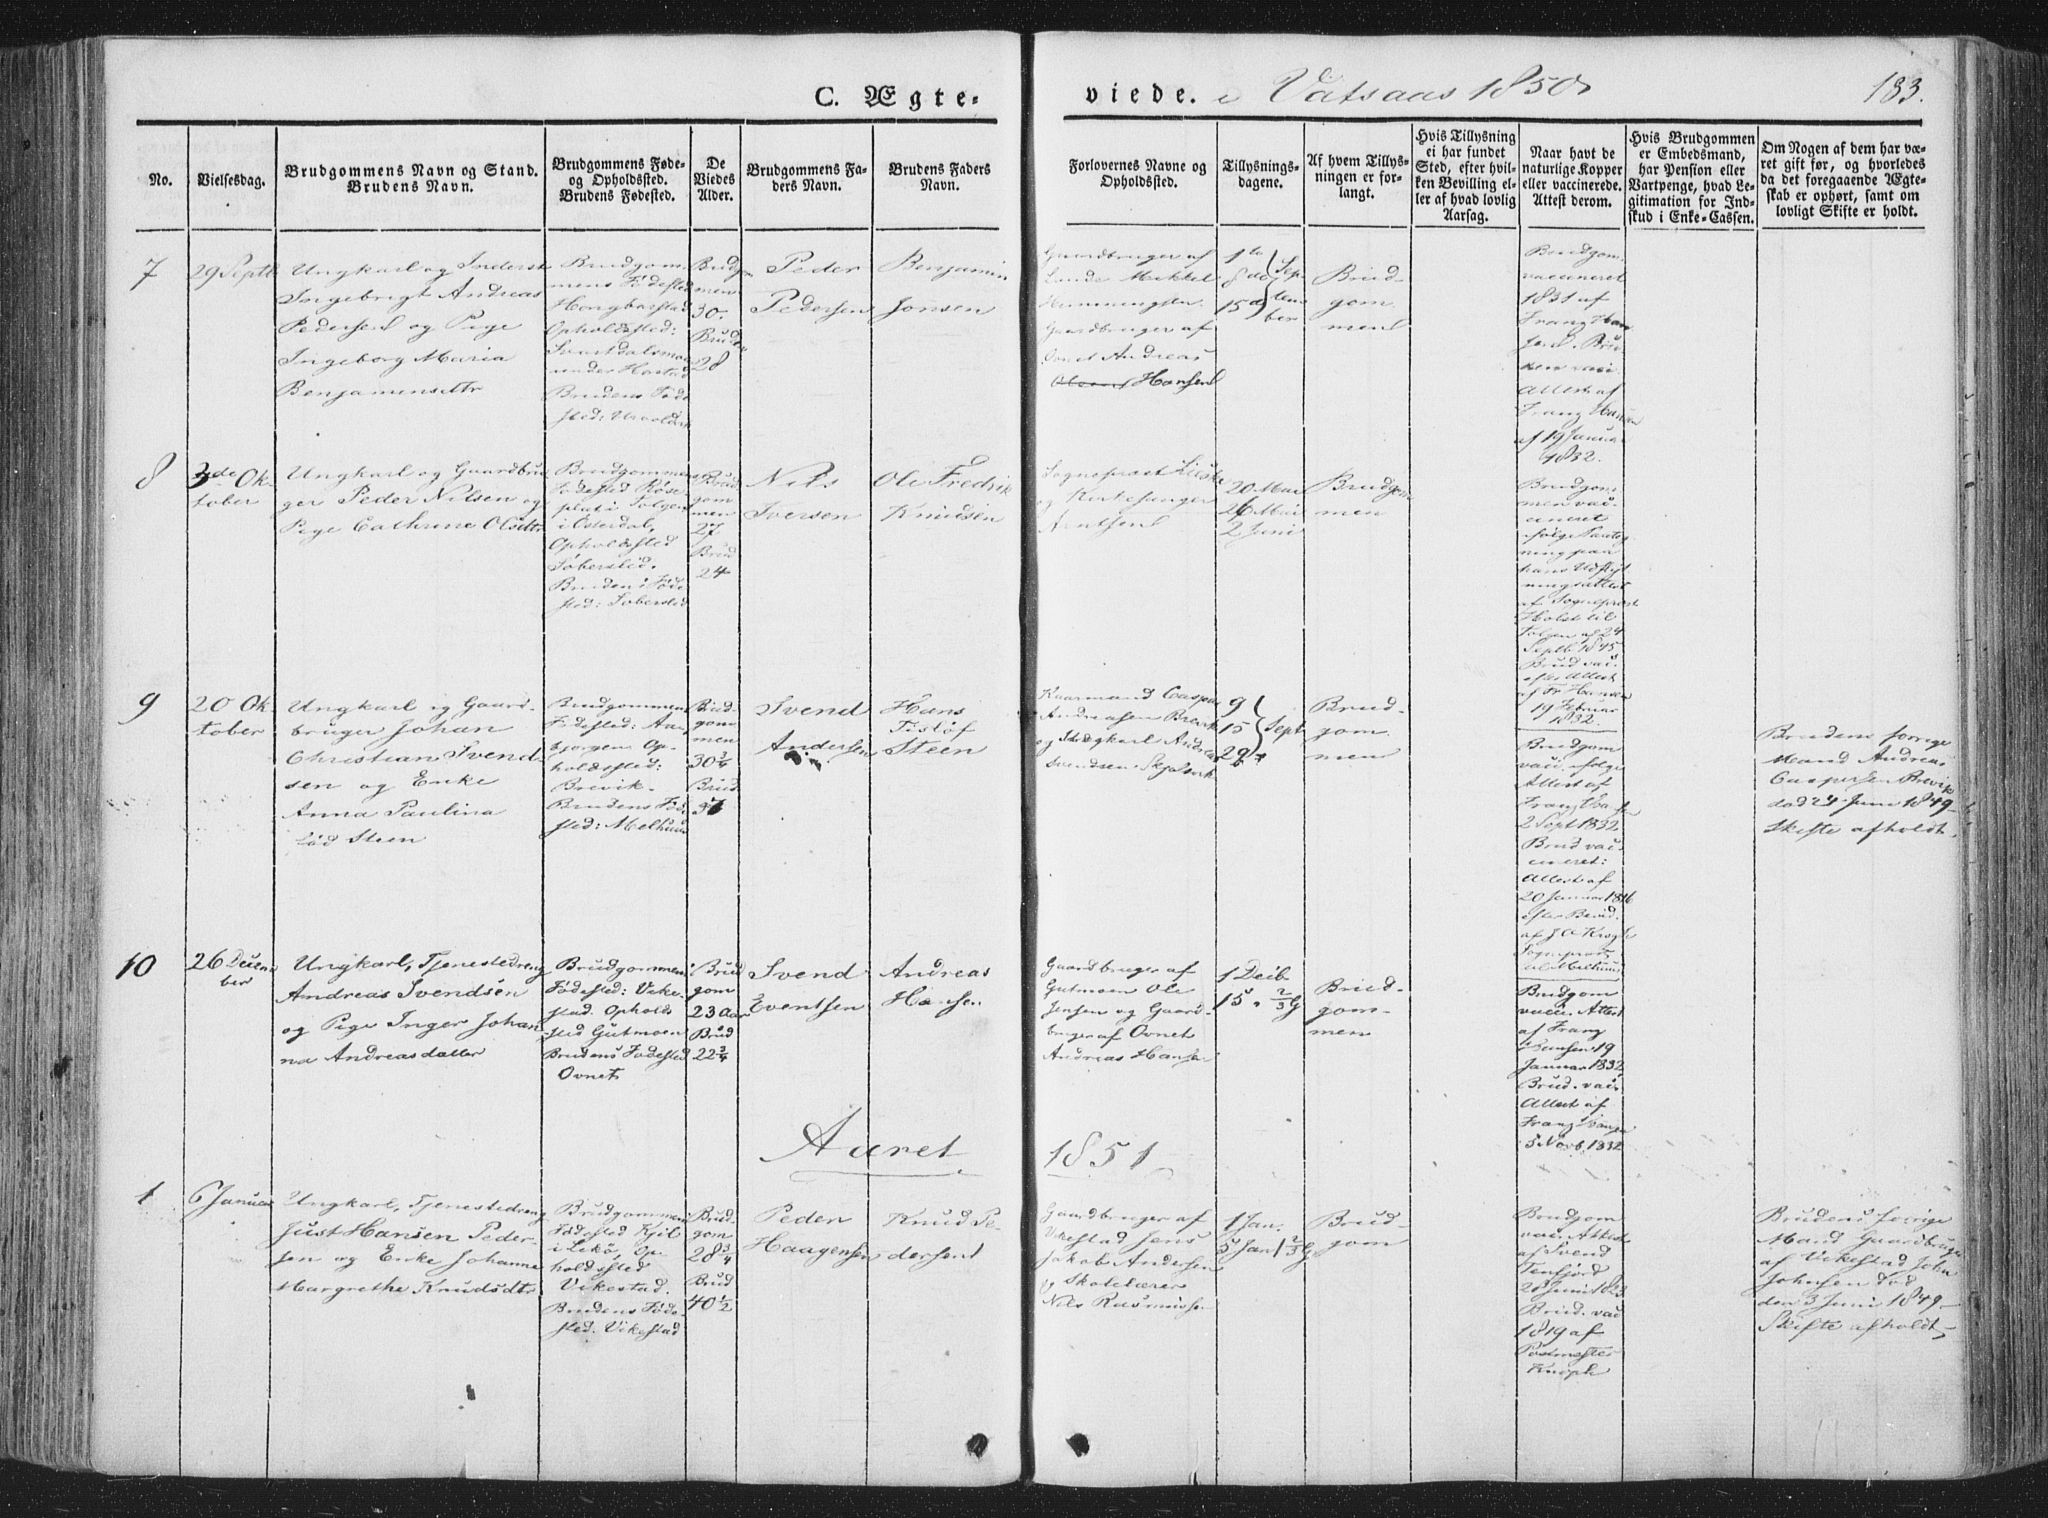 C. Ægte-
viede. i Vatsaas 1850
183.
No.
Vielsesdag.
Brudgommens Navn og Stand.
Brudens Navn.
Brudgommens Føde-
og Opholdssted.
Brudens Fødested.
De
Viedes
Alder.
Brudgommens Fa-
ders Navn.
Brudens Faders
Navn.
Forlovernes Navne og
Opholdssted.
Tillysnings-
dagene.
Af hvem Tillys-
ningen er for-
langt.
Hvis Tillysning
ei har fundet
Sted, efter hvil-
ken Bevilling el-
ler af hvad lovlig
Aarsag.
Naar havt de
naturlige Kopper
eller vaccinerede.
Attest derom.
Hvis Brudgommen
er Embedsmand,
har Pension eller
Vartpenge, hvad Le-
gitimation for Ind-
skud i Enke-Cassen.
Om Nogen af dem har væ-
ret gift før, og hvorledes
da det foregaaende Ægte-
skab er ophørt, samt om
lovligt Skifte er holdt.
7
29 Septb
Ungkarl og Inderst
Ingebrigt Andreas
Pedersen og Pige
Ingeborg Maria
Benjaminsdtr
Brudgom-
mens Fødested
Opholdssted:
under Horstad
Brudens Føde
sted:
Brudgom
men
30.
Bruden
28
Peder
Pedersen
Benjamin
Jonsen
Gaardbruger af
Lande Mikkel
Hemmingsen
Gaardbruger af
Ovnet Andreas
Hansen
1te
8de
15de
Sep
tem
ber
Brud
gom
men
Brudgom.
vaccineret
1831 af
Franz Han
sen. Bru
den vaci
Attest af
Franz Hansen
af 19 Januar
1832.
8
3de Ok-
tober
Ungkarl og Gaardbru
ger Peder Nilsen og
Pige Cathrine Olsdtr
Brudgommens
Fødested Røse
plads i Tolgen
i Østerdal,
Opholdssted
Søbersted.
Brudens Føde
sted: Sobersted
Brud
gom
men
27
Brud
24
Nils
Iversen
Ole Fredrik
Knudsen
Sogneprost
og Kirkesanger
Arntsen
20 Mai
26 Mai
2 Juni
Brudgom
men
Brudgom
men vac-
cineret
ifølge Paateg
ning paa
hans Udflyt
ningsattest
af Sogneprest
Holst til
Tolgen af 24
Septb. 1845
Brud vac.
efter Attest
af Fr Hansen
19 Februar
1832.
9
20 Ok
tober
Ungkarl og Gaard-
bruger Johan
Christian Svend
sen og Enke
Anna Paulina
født Steen
Brudgommens
Fødested: Aar
bjorgen Op-
holdssted:
Brevik.
Brudens Fød
sted: Melhuus
Brud-
gom
men
30 1/4
Brud
37
Svend
Andersen
Hans
Tisløf
Steen
Kaarmand Casper
Andreasen Brevik
og Ungkarl Andreas
Svendsen
9
15
29
Sept
Brud-
gom
men
Brudgom
vacc. ifølge
Attest af
Franz Han
2 Sept 1832.
Brud vac-
cineret:
Attest af
20 Januar 1816
efter Bevid.
af J A Krogh
Sogneprest
til Melhuus
Brudens forrige
Mand Andreas
Caspersen Brevik
død 24 Juni 1849-
Skifte afholdt.
10
26 Decem
ber
Ungkarl, Tjenestedreng
Andreas Svendsen
og Pige Inger Johan
na Andreasdatter
Brudgommens
Fødested: Vike-
stad. Opholds
sted Gutmoen
Brudens Fødested
Ovnet
Brud
gom
23 Aar
Brud
22 3/4
Svend
Eventsen
Andreas
Hansen
Gaardbruger af
Gutmoen Ole
Jensen og Gaard-
bruger af Ovnet
Andreas Hansen
1 Decb
15 " 2/3 G
Brud-
gom-
men
Brudgom
vacc. Attest
af Franz
Hansen 19
Januar 1832
Brud. vac.
Attest af
Franz Hansen
5 Novb. 1832
Aaret 1851
1
6 Januar
Ungkarl, Tjenestedreng
Just Hansen Peder-
sen og Enke Johanne
Margrethe Knudsdtr
Brudgommens
Fødested Kjil
i Lekø, Op-
holdssted
Vikestad.
Brudens Føde-
sted. Vikestad
Brud-
gom
28 3/4
Brud
40 1/2
Peder
Haagensen
Knud Pe-
dersen
Gaardbruger af
Vikestad Jens
Jakob Andersen
og Skolelærer
Nils Rasmussen
1 Jan.
5 Jan 1 2/3 G
Brud-
gom
Brudgom
vacc. Attest
af Svend
Tenfjord
20 Juni 1823
Brud. vac
1819 af
Postmester
Knoph
Brudens forrige
Mand Gaardbruger
af Vikestad John
Johnsen død
den 3 Juni 1849-
Skifte afholdt,